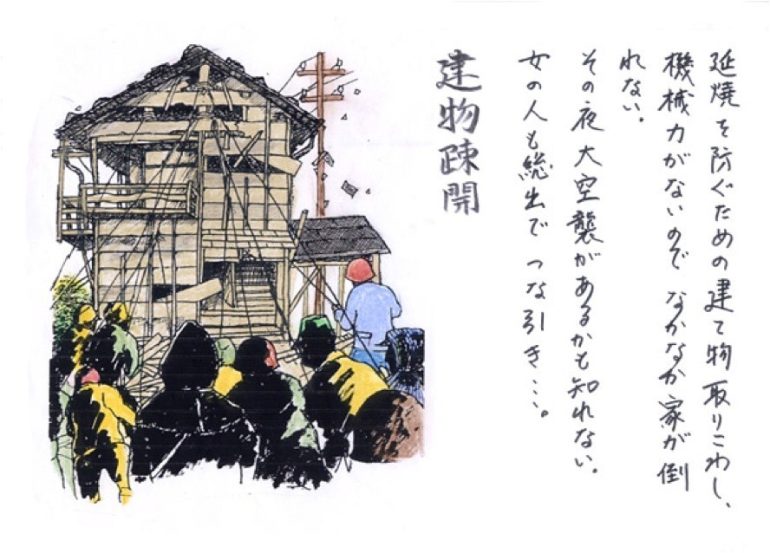 延焼を防ぐための建て物取りこわし、
機械力がないので なかなか家が倒
れない。
その夜大空襲があるかも知れない。
女の人も総出で つな引き…。
建物疎開